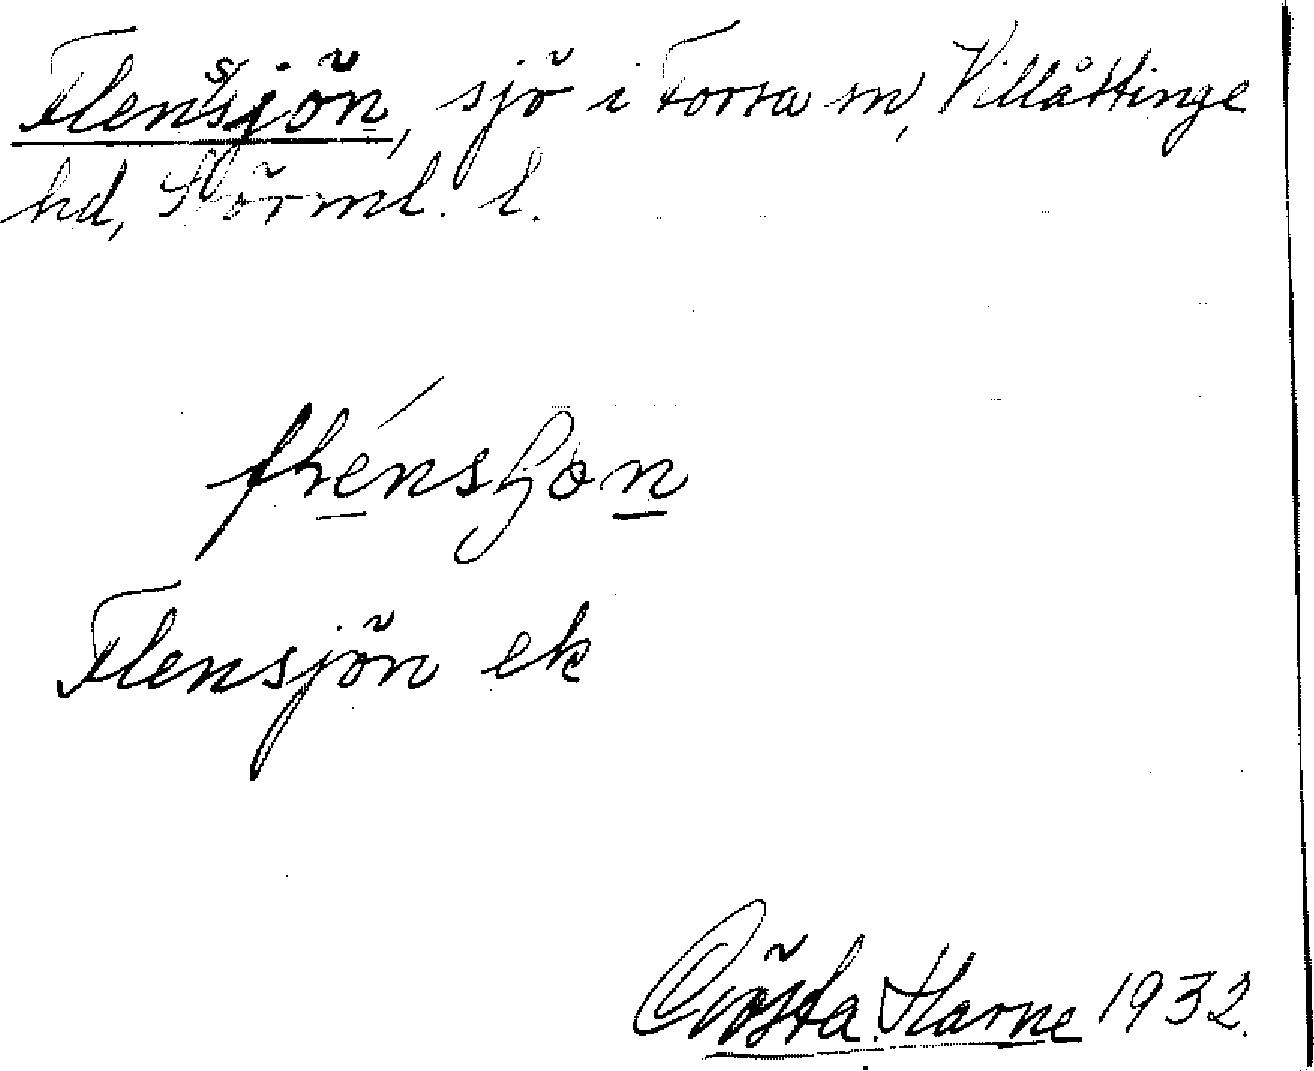 Flensjön, sjö i Forssa sn, Villåttinge
hd, Sörml. l.
flénsʃon
Flensjön ek
Gösta Harne 1932.